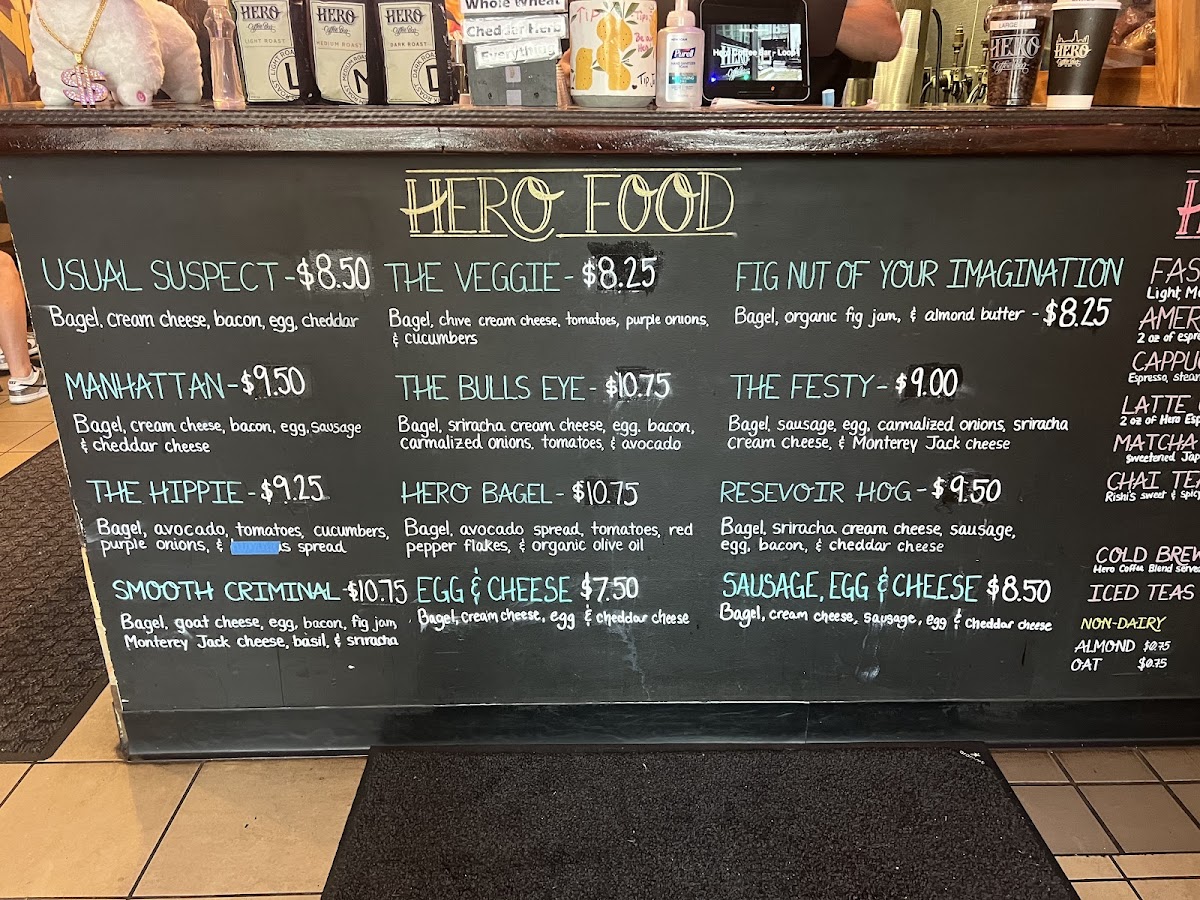 HERO
Coffee Bar
LIGHT ROAST
L
HERO
Coffee Bar
MEDIUM ROAST
M
HERO
Coffee Bar
DARK ROAST
D
Whole Wheat
Cheddar Herb
Everything
Purell
Hero Coffee Bar - Loop
LARGE
HERO
Coffee Bar
HERO
HERO FOOD
USUAL SUSPECT - $8.50
Bagel, cream cheese, bacon, egg, cheddar
MANHATTAN - $9.50
Bagel, cream cheese, bacon, egg, sausage
& cheddar cheese
THE HIPPIE - $9.25
Bagel, avocado, tomatoes, cucumbers,
purple onions, & us spread
SMOOTH CRIMINAL - $10.75
Bagel, goat cheese, egg, bacon, fig jam
Monterey Jack cheese, basil, & sriracha
THE VEGGIE - $8.25
Bagel, chive cream cheese, tomatoes, purple onions,
& cucumbers
THE BULLS EYE - $10.75
Bagel, sriracha cream cheese, egg, bacon,
carmalized onions, tomatoes, & avocado
HERO BAGEL - $10.75
Bagel, avocado spread, tomatoes, red
pepper flakes, & organic olive oil
EGG & CHEESE $7.50
Bagel, cream cheese, egg & cheddar cheese
FIG NUT OF YOUR IMAGINATION
Bagel, organic fig jam, & almond butter - $8.25
THE FESTY - $9.00
Bagel, sausage, egg, carmalized onions, sriracha
cream cheese, & Monterey Jack cheese
RESEVOIR HOG - $9.50
Bagel, sriracha cream cheese, sausage,
egg, bacon, & cheddar cheese
SAUSAGE, EGG & CHEESE $8.50
Bagel, cream cheese, sausage, egg & cheddar cheese
H
FAS
Light Me
AMER
2 oz of espre
CAPPU
Espresso, stea
LATTE
2 oz of Hero Esp
MATCHA
Sweetened Jap
CHAI TEA
Rishi's sweet & spicy
COLD BREW
Hero Coffee Blend served
ICED TEAS
NON-DAIRY
ALMOND $0.75
OAT $0.75